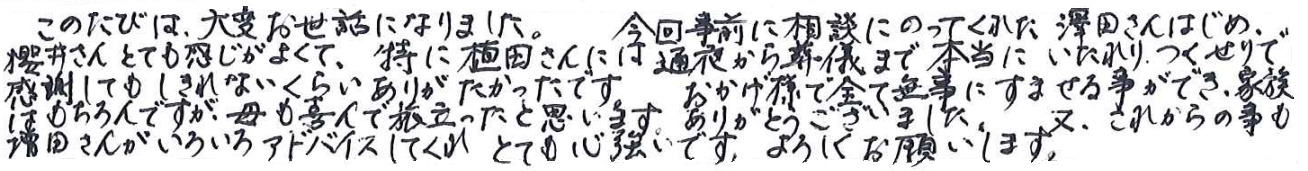 このたびは、大変お世話になりました。　今回事前に相談にのってくれた 澤田さんはじめ、
櫻井さんとても感じがよくて、特に植田さんには通夜から葬儀まで本当に いたれりつくせりで
感謝してもしきれないくらいありがたかったです　おかげ様で全て無事にすませる事ができ、家族
はもちろんですが、母も喜んで旅立ったと思います。ありがとうございました。　又、これからの事も
増田さんがいろいろアドバイスしてくれ とても心強いです。よろしくお願いします。